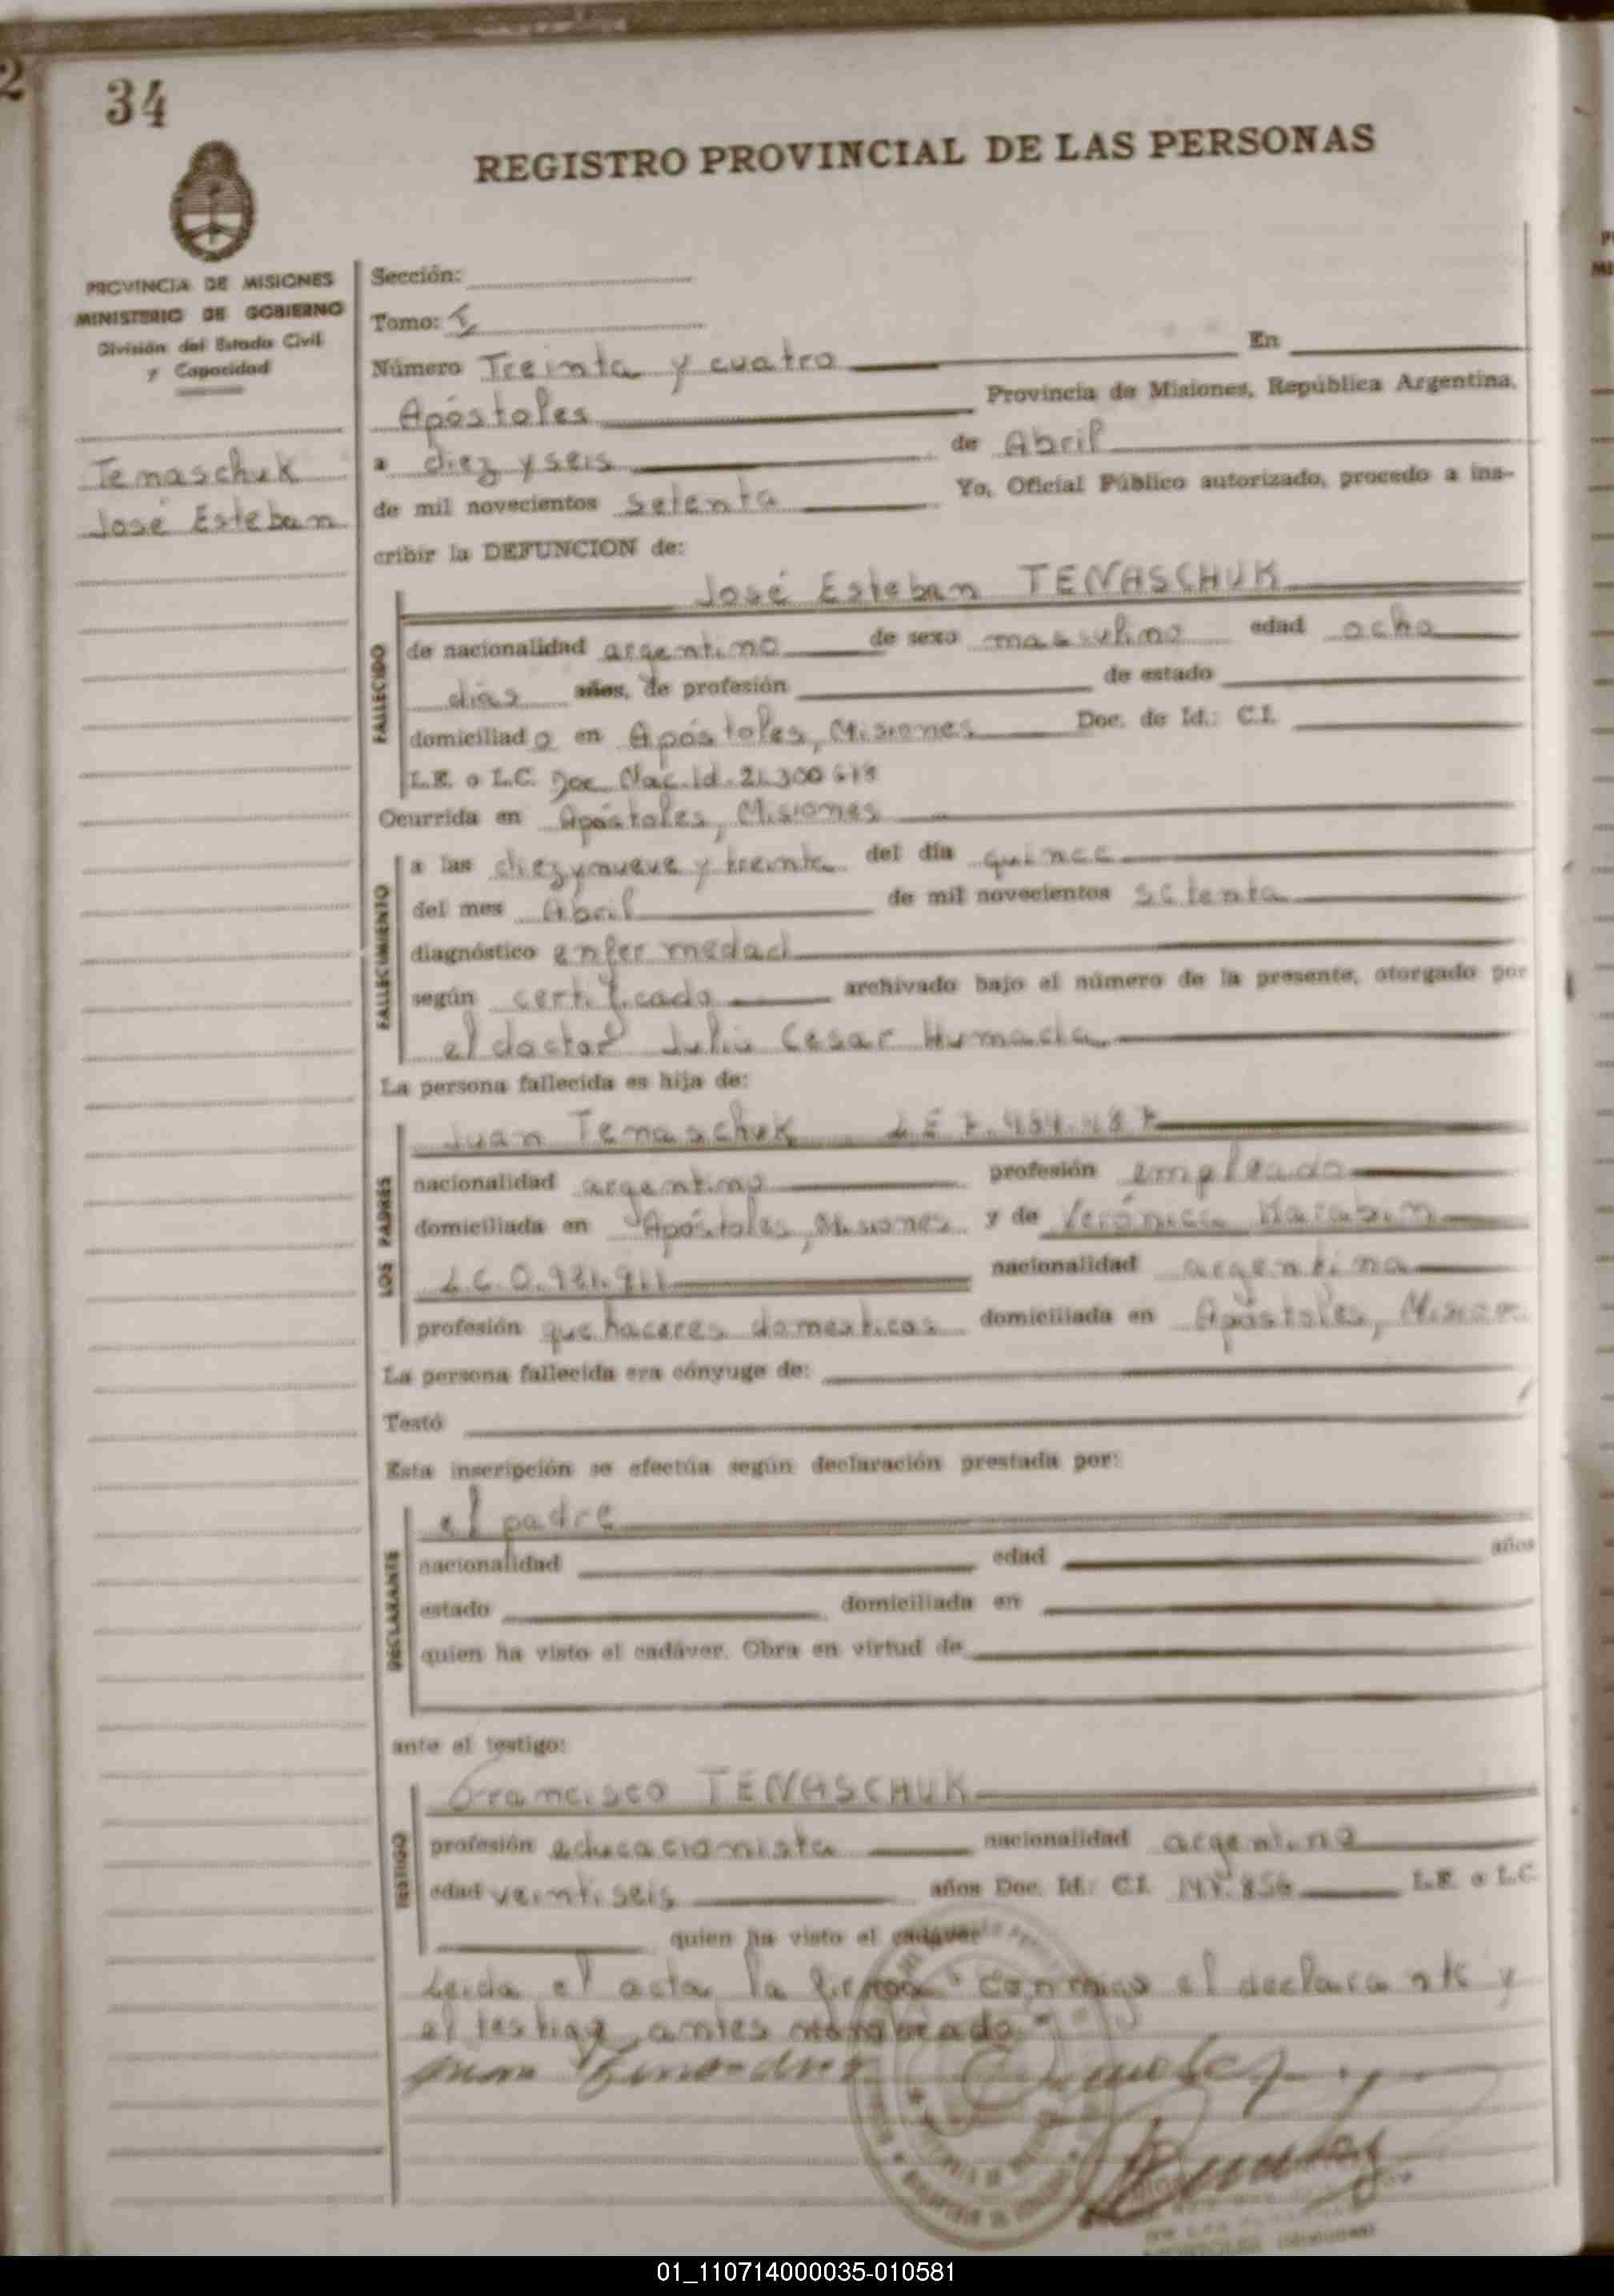 2
34
REGISTRO PROVINCIAL DE LAS PERSONAS
PROVINCIA DE MISIONES
MINISTERIO DE GOBIERNO
División del Estado Civil
y Capacidad
Temaschuk
José Esteban
Sección:
Tomo: I
Número Treinta y cuatro En
Apóstoles Provincia de Misiones, República Argentina,
a diez y seis de Abril
de mil novecientos setenta Yo, Oficial Público autorizado, procedo a ins-
cribir la DEFUNCION de:
José Esteban TENASCHUK
FALLECIDO
de nacionalidad argentino de sexo masculino edad ocho
días años, de profesión de estado
domiciliado en Apóstoles, Misiones Doc. de Id.: C.I.
L.E. o L.C. Doc. Nac. Id. 21.300
Ocurrida en Apóstoles, Misiones
FALLECIMIENTO
a las diez y nueve y treinta del día quince
del mes Abril de mil novecientos setenta
diagnóstico enfermedad
según certificado archivado bajo el número de la presente, otorgado por
el doctor Julio Cesar Humada
La persona fallecida es hija de:
LOS PADRES
Juan Tenaschuk L E
nacionalidad argentino profesión empleado
domiciliada en Apóstoles, Misiones y de Verónica
L C
nacionalidad argentina
profesión quehaceres domesticos domiciliada en Apóstoles,
La persona fallecida era cónyuge de:
Testó
Esta inscripción se efectúa según declaración prestada por:
DECLARANTE
el padre
nacionalidad edad años
estado domiciliada en
quien ha visto el cadáver. Obra en virtud de
ante el testigo:
TESTIGO
Francisco TENASCHUK
profesión educacionista nacionalidad argentino
edad veintiseis años Doc. Id.: C.I. L.E. o L.C.
quien ha visto el cadáver
Leida el acta la firman conmigo el declarante y
el testigo antes nombrado
01_110714000035-010581